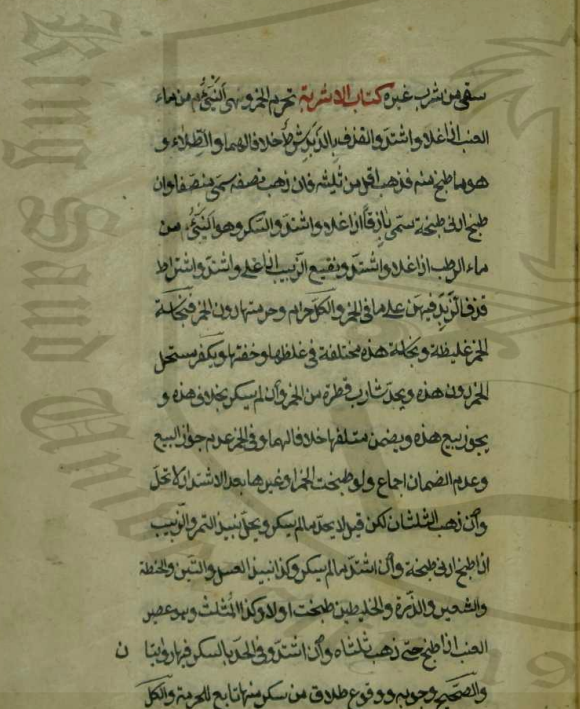 سقى من شرب غيره كتاب الاشربة تحرم الخمر وهى النيئ من ماء
العنب اذا غلا واشتد والقذف بالزبد شرط خلافا لهما والطلاء و
هو ما طبخ منه فذهب اقل من ثلثيه فان ذهب نصفه سمى منصفا وان
طبخ ادنى طبخة سمى باذقا اذا غلا واشتد والسكر وهو النيئ من
ماء الرطب اذا غلا واشتد ونقيع الزبيب اذا غلى واشتد واشتراط
قذف الزبد فيهن على ما فى الخمر والكل حرام وحرمتها دون الخمر فنجاسة
الخمر غليظة ونجاسة هذه مختلفة فى غلظها وخفتها ويكفر مستحل
الخمر دون هذه ويحد شارب قطرة من الخمر وان لم يسكر بخلاف هذه و
يجوز بيع هذه ويضمن متلفها خلافا لهما وفى الخمر عدم جواز البيع
وعدم الضمان اجماع ولو طبخت الخمر او غيرها بعد الاشتداد لا تحل
وان ذهب الثلثان لكن قيل لا يحد ما لم يسكر ويحل نبيذ التمر والزبيب
اذا طبخ ادنى طبخة وان اشتد ما لم يسكر وكذا نبيذ العسل والتين والحنطة
والشعير والذرة والخليطين طبخت اولا وكذا المثلث وهو عصير
العنب اذا طبخ حتى ذهب ثلثاه وان اشتد وفى الحد بالسكر فيها روايتا ن
والصحيح وجوبه ووقوع طلاق من سكر منها تابع للحرمة والكل
King Saud University
19